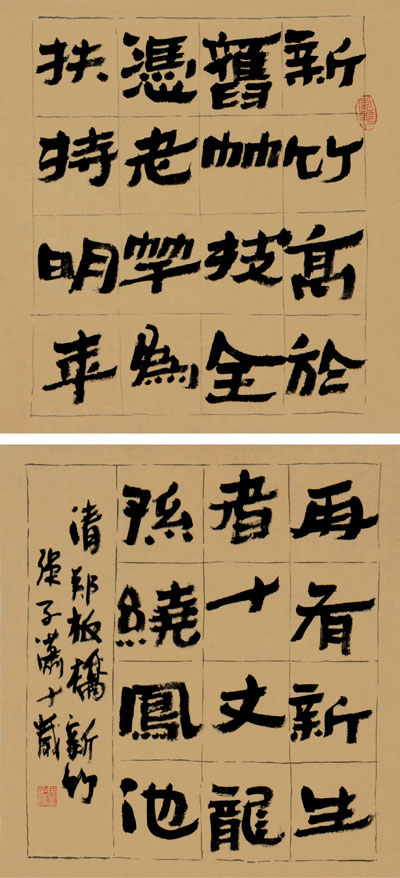 新竹高於
舊竹枝全
憑老竿為
扶持明年
再有新生
者十丈龍
孫繞鳳池
清鄭板橋新竹
張子瀟十歲